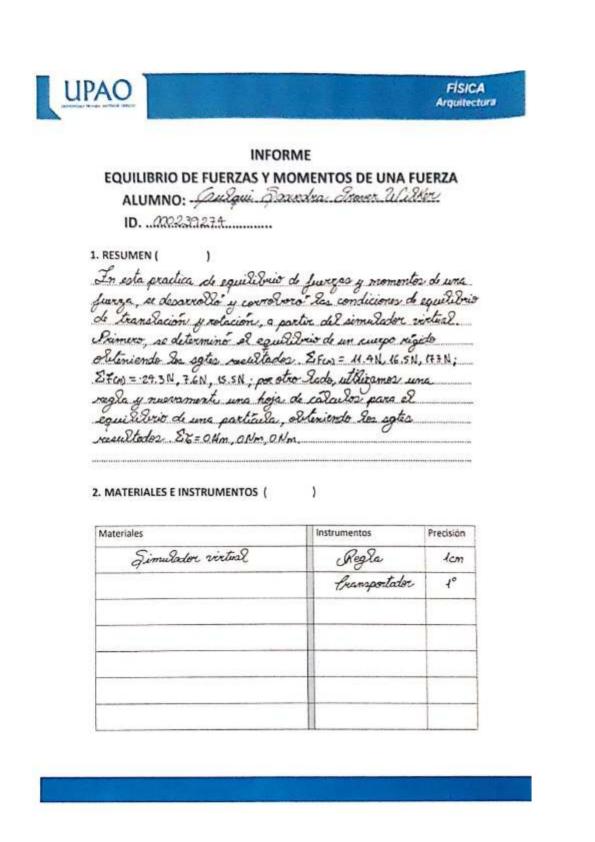 UPAO
FÍSICA
Arquitectura
INFORME
EQUILIBRIO DE FUERZAS Y MOMENTOS DE UNA FUERZA
ALUMNO: Saandra Grover Wilker
ID. 000239274
1. RESUMEN ( )
En esta practica de equilibrio de fuerzas y momentos de una
fuerza, se desarrolló y corroboro las condiciones de equilibrio
de translación y rotación, a partir del simulador virtual.
Primero, se determinó el equilibrio de un cuerpo rígido
obteniendo los sgtes resultados. ΣF(x) = 11.4N, 16.5N, 17.3N;
ΣF(x) = -29.3N, 7.6N, 15.5N; por otro lado, utilizamos una
regla y nuevamente una hoja de cálculos para el
equilibrio de una partícula, obteniendo los sgtes
resultados. Στ = 0Nm, 0Nm, 0Nm.
2. MATERIALES E INSTRUMENTOS ( )
Materiales Instrumentos Precisión
Simulador virtual Regla 1cm
Transportador 1°